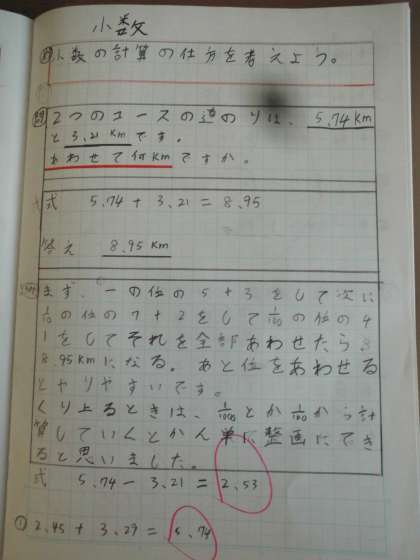 小数
小数の計算の仕方を考えよう。
問 2つのコースの道のりは、5.74Km
と3.21Kmです。
あわせて何Kmですか。
式 5.74+3.21=8.95
答え 8.95Km
まず、一の位の5+3をして次に
1/10の位の7+2をして1/100の位の4
1をしてそれを全部あわせたら
8.95Kmになる。あと位をあわせる
とやりやすいです。
くり上るときは、1/100とか1/10から計
算していくとかん単に整画にでき
ると思いました。
式 5.74-3.21=2.53
① 2.45+3.29=5.74